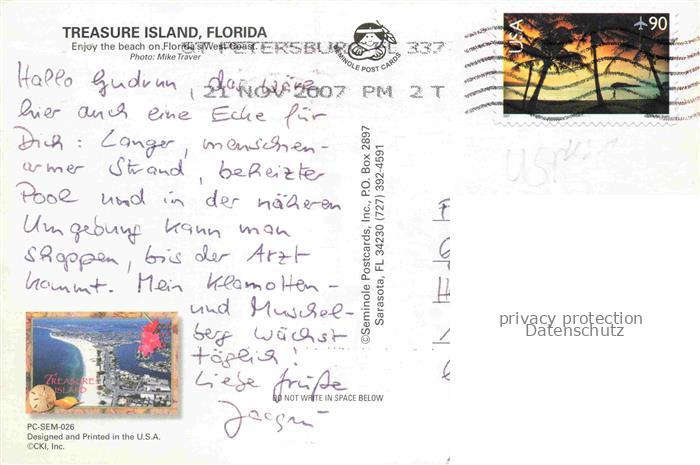 TREASURE ISLAND, FLORIDA
Enjoy the beach on Florida's West Coast.
Photo: Mike Traver
SEMINOLE POST CARDS
ST PETERSBURG FL 337
21 NOV 2007 PM 2 T
USA
90
Hallo Gudrun, das wäre
hier auch eine Ecke für
Dich: Langer, menschen-
armer Strand, beheizter
Pool und in der näheren
Umgebung kann man
shoppen, bis der Arzt
kommt. Mein Klamotten-
und Muschel-
berg wächst
täglich!
Liebe Grüße
©Seminole Postcards, Inc., P.O. Box 2897
Sarasota, FL 34230 (727) 392-4591
privacy protection
Datenschutz
TREASURE
ISLAND
DO NOT WRITE IN SPACE BELOW
PC-SEM-026
Designed and Printed in the U.S.A.
©CKI, Inc.